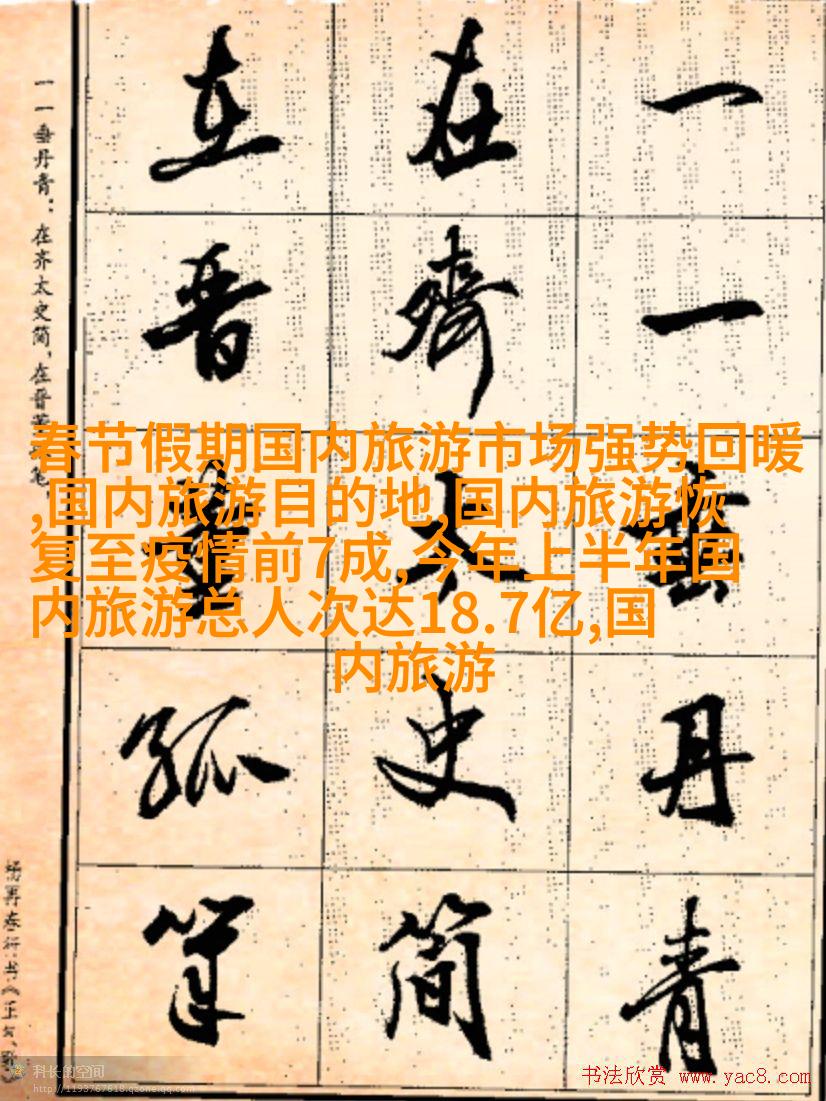 春节假期国内旅游市场强势回暖
,国内旅游目的地,国内旅游恢
复至疫情前7成,今年上半年国
内旅游总人次达18.7亿,国
内旅游
一一垂丹青
在齊太史简
在晋董狐筆
一一垂丹青：在齐太史简，在晋
科长的空间
http://1193767618.qzone.qq.com
书法欣赏 www.yac8.com